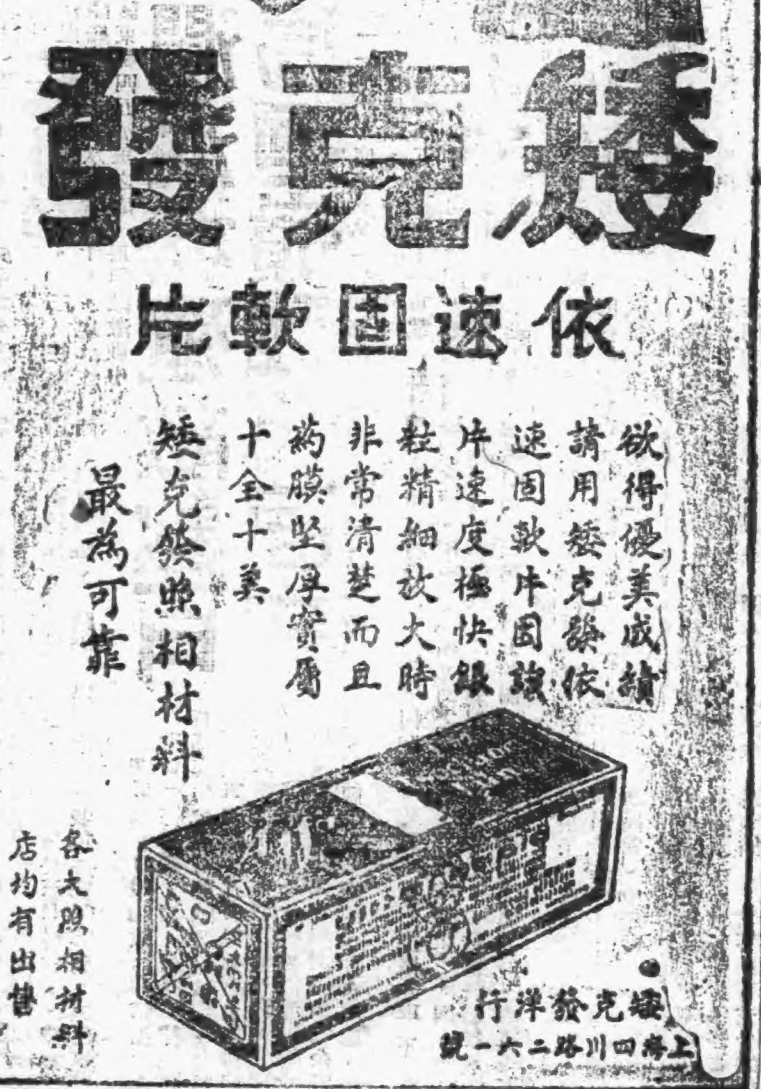 矮克發
依速固軟片
欲得優美成績
請用矮克發依
速固軟片因該
片速度極快銀
粒精細放大時
非常清楚而且
葯膜堅厚實屬
十全十美
矮克發照相材料
最為可靠
各大照相材料
店均有出售
矮克發洋行
上海四川路二六一號